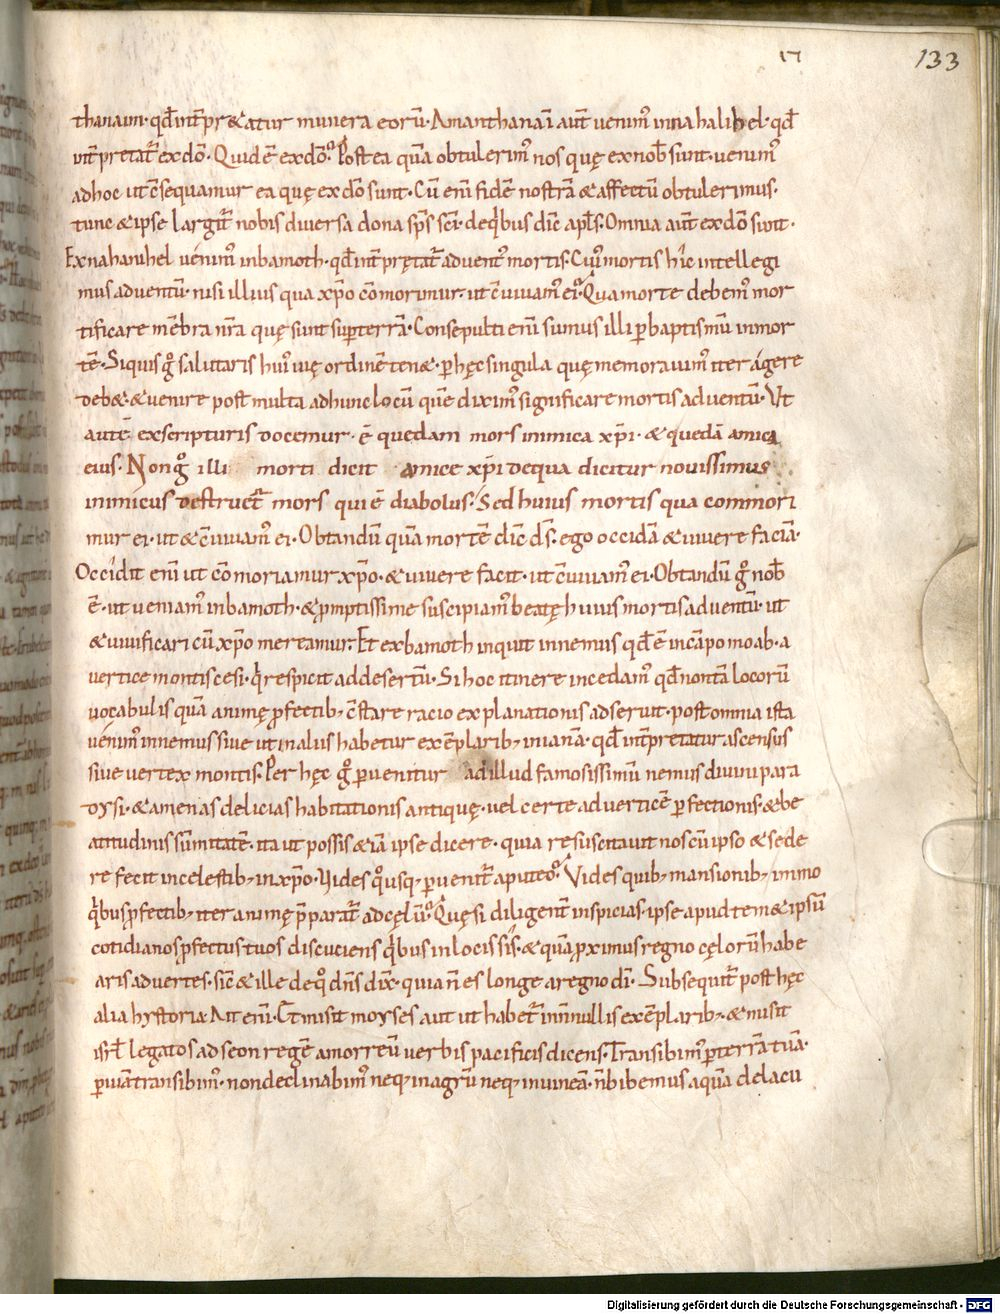 17 133
thanaim· qđ int̄pr&atur munera eorū· A manthanaī aut̄ uenim᷒ in nahalihel· qđ
int̄pretat̄ ex dō· Quid ē ex dō? Postea quā obtulerim᷒ nos quę ex nob̄ sunt· uenim᷒
ad hoc ut c̄sequamur ea quę ex dō sunt· Cū enī fidē nostrā & affectū obtulerimus·
tunc & ipse largit̄ nobis diuersa dona sp̄s sc̄i· de qb᷒ dic̄ apl̄s· Omnia aut̄ ex dō sunt·
Ex nahanihel uenim᷒ in bamoth· qđ int̄prętat̄ aduent᷒ mortis· Cui᷒ mortis hic intellegi
mus aduentū· nisi illius qua xp̄o cōmorimur· ut c̄uiuam᷒ ei? Qua morte debem᷒ mor
tificare mēbra nr̄a quę sunt sup̄ terrā· Consepulti enī sumus illi p̄ baptismū in mor
tē· Siquis g̊ salutaris hui᷒ uię ordinē ten&· p̄ hęc singula quę memorauim᷒ iter agere
deb&· & uenire post multa ad hunc locū quē dixim᷒ significare mortis aduentū· Ut
autē ex scripturis docemur· ē quedam mors inimica xp̄i· & quedā amica
eius· Non g̊ illi morti dicit amice xp̄i de qua dicitur nouissimus
inimicus destruet̄ mors qui ē diabolus· Sed huius mortis qua commori
mur ei· ut & c̄uiuam᷒ ei· Obtandū quā mortē dic̄ d̄s· ego occidā & uiuere faciā·
Occidit enī ut cōmoriamur xp̄o· & uiuere facit· ut c̄uiuam᷒ ei· Obtandū g̊ nob̄
ē· ut ueniam᷒ in bamoth· & p̄mptissime suscipiam᷒ beatę huius mortis aduentū· ut
& uiuificari cū xp̄o mereamur· Et ex bamoth inquit in nemus qđ ē in cāpo moab· a
uertice montis cesi· q̄ respicit ad desertū· Si hoc itinere incedam᷒ qđ nontā locorū
uocabulis quā animę p̄fectib; c̄stare racio explanationis adseruit· post omnia ista
uenim᷒ in nemus siue ut in alus habetur exēplarib; in ianā· qđ int̄pretatur ascensus
siue uertex montis· Per hęc g̊ p̄uenitur ad illud famosissimū nemus diuini para
dysi· & amenas delicias habitationis antiquę· uel certe ad uerticē p̄fectionis· & be
atitudinis sūmitatē· ita ut possis & iā ipse dicere· quia resuscitauit nos cū ipso & sede
re fecit in celestib; in xp̄o· Vides q̊usq; p̄uenit̄ a puteo? Vides quib; mansionib; immo
q̄bus p̄fectib; iter animę p̄parat̄ ad cęlū? Quę si diligent̄ inspicias· ipse apud tem&ipsū
cotidianos p̄fectus tuos discuciens q̄bus in locis sis· & quā p̄ximus regno cęlorū habe
aris aduertes· sic̄ & ille de q̊ dn̄s dix̄· quia n̄ es longe a regno dī· Subsequit̄ post hęc
alia hystoria· Ait enī· Et misit moyses aut ut habet̄ in n̄nullis exēplarib;· & misit
isr̄l legatos ad seon regē amorreū uerbis pacificis dicens· Transibim᷒ p̄ terrā tuā·
p̄ uiā transibim᷒· non declinabim᷒ neq; in agrū neq; in uineā· n̄ bibemus aquā de lacu
Digitalisierung gefördert durch die Deutsche Forschungsgemeinschaft - DFG